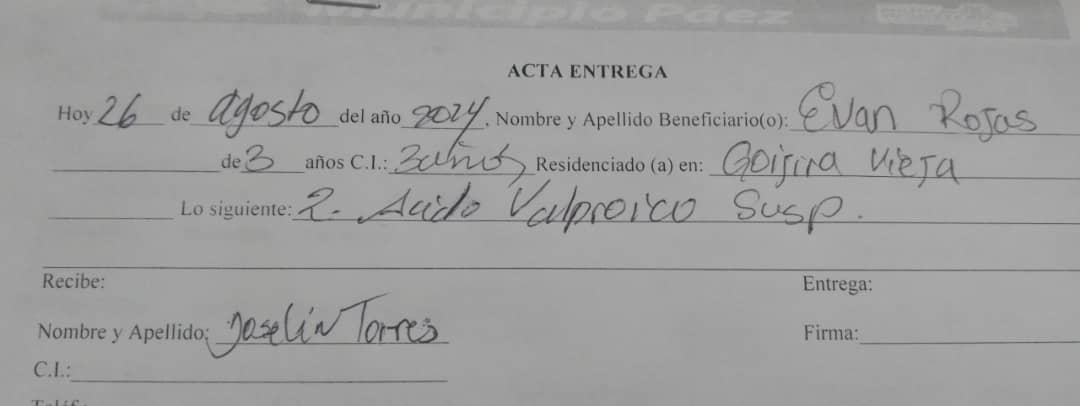 Municipio Páez
ACTA ENTREGA
Hoy 26 de agosto del año 2024, Nombre y Apellido Beneficiario(o): Evan Rojas
de 3 años C.I.: 3 años Residenciado (a) en: Goijira Vieja
Lo siguiente: 2. Acido Valproico Susp.
Recibe: Entrega:
Nombre y Apellido: Joselin Torres Firma:
C.I.: